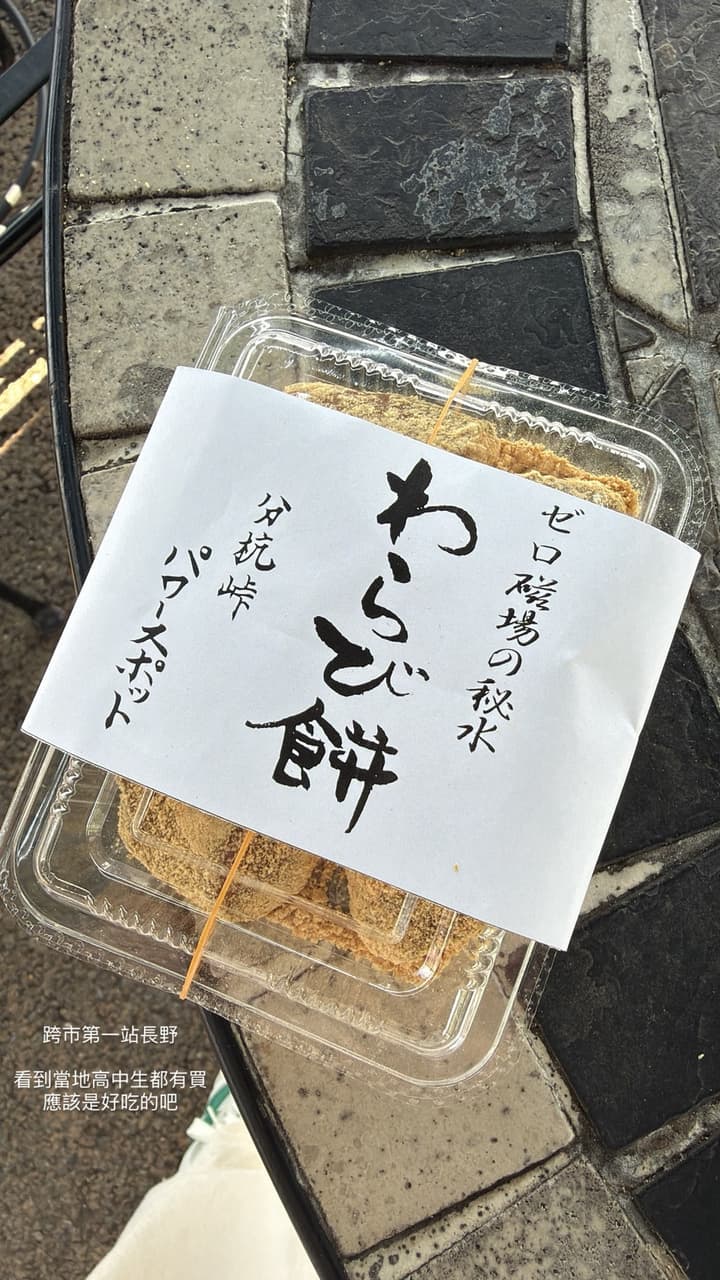 ゼロ磁場の秘水
わらび餅
分杭峠
パワースポット
跨市第一站長野
看到當地高中生都有買
應該是好吃的吧